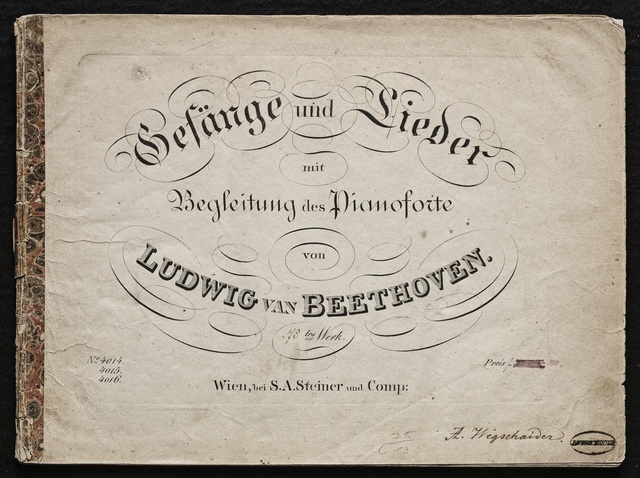 Gesänge und Lieder
mit
Begleitung des Pianoforte
von
LUDWIG VAN BEETHOVEN.
tes Werk.
No. 4014.
4015.
4016.
Preis
Wien, bei S.A. Steiner und Comp:
A. Wegschaider.